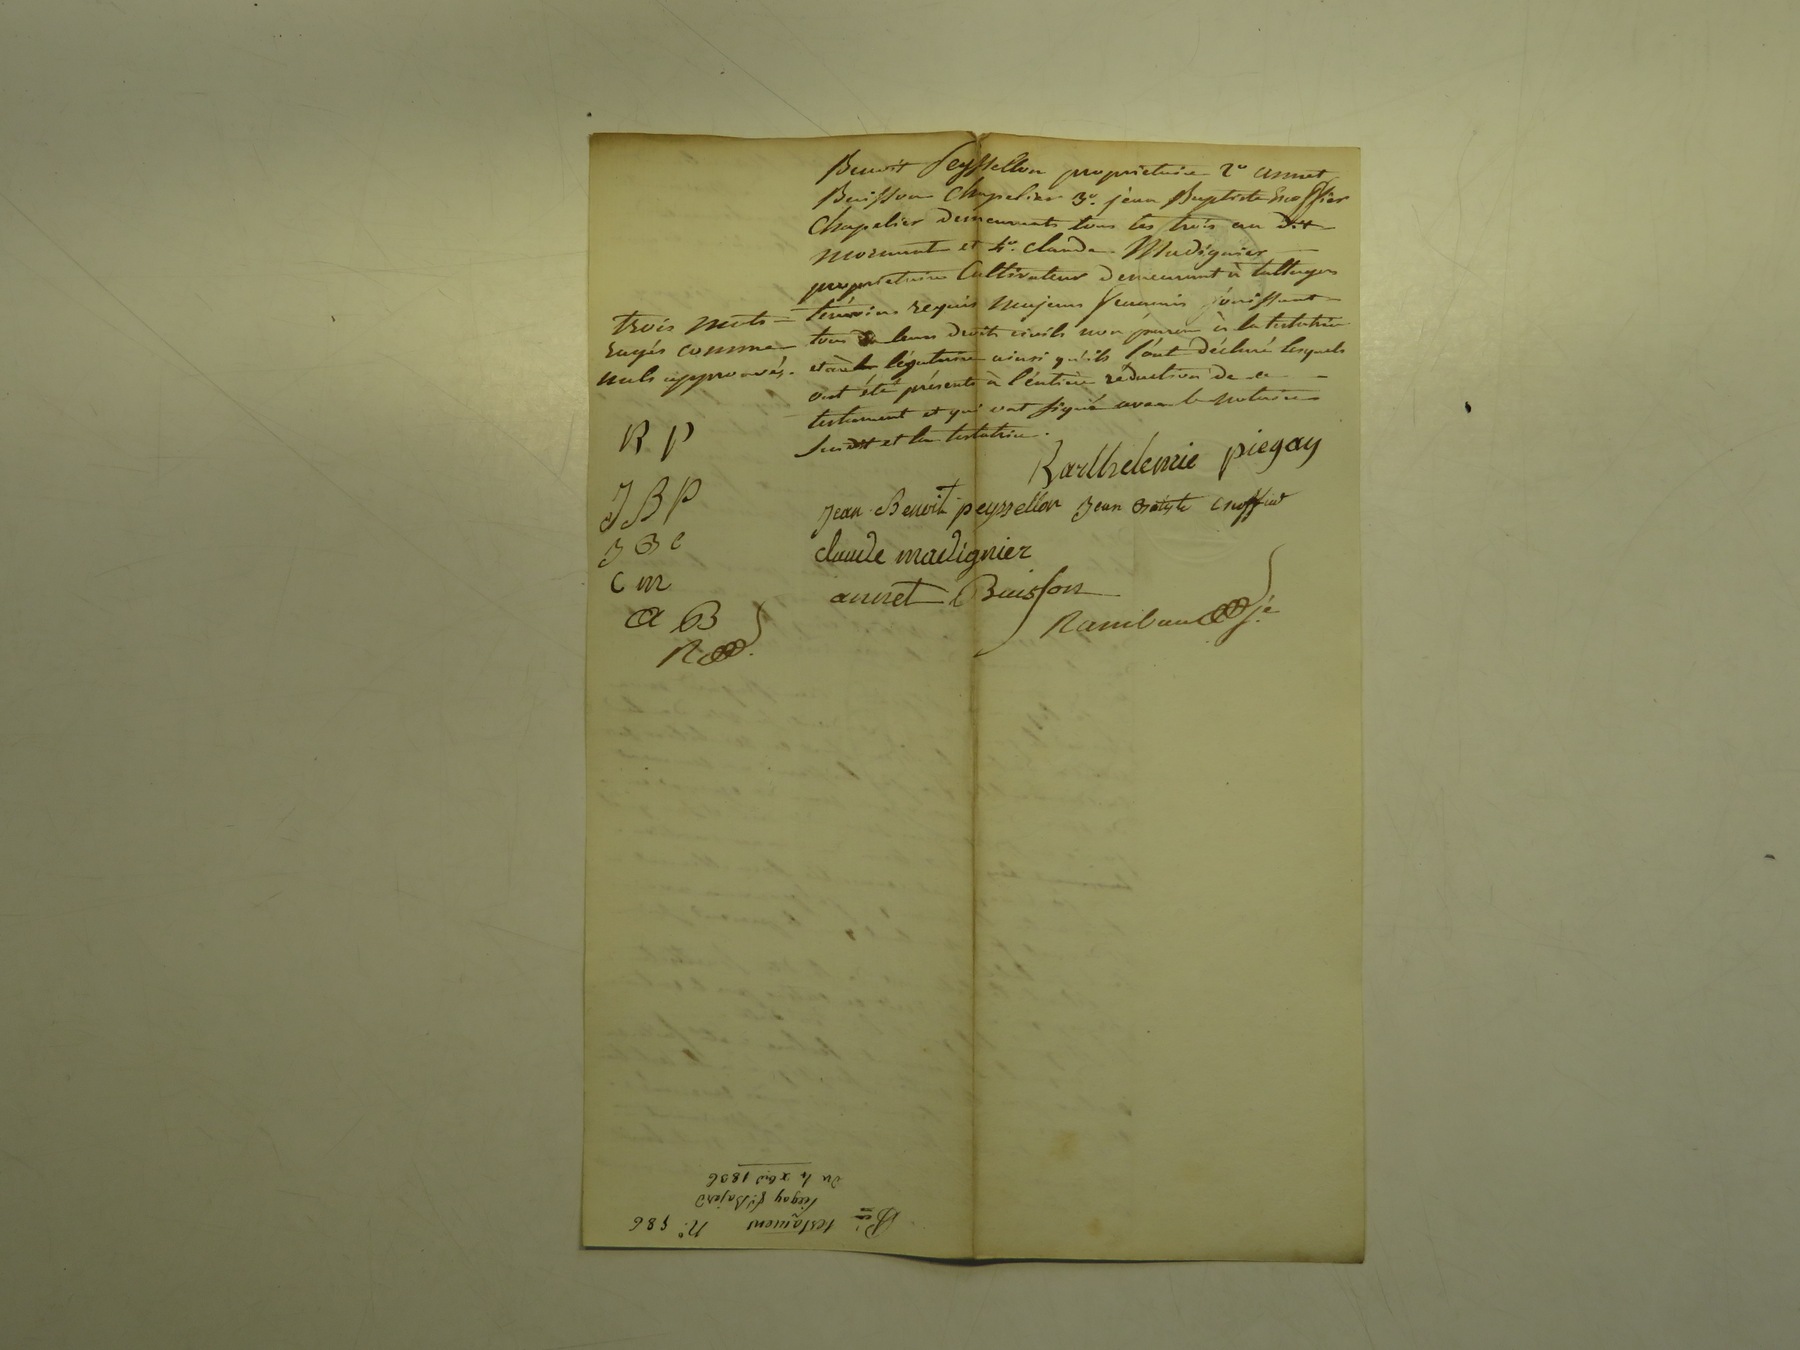 Benoit Peyssellon propriétaire 2° annet
Buisson Chapelier 3°. jean Baptiste Escoffier
Chapelier demeurants tous les trois au dit
mornant et 4°. claude Madignier
propriétaire Cultivateur demeurant à talluyers
témoins requis majeurs français jouissant
tous de leurs droits civils non parens à la testatrice
et à la légataire ainsi qu'ils l'ont déclaré lesquels
ont été présents à l'entière rédaction de ce
testament et qui ont signé avec le notaire
susdit et la testatrice.
trois mots
rayés comme
nuls approuvés.
R P
J B P
J B C
C m
a B
R
Barthelemie piegay
jean Benoit peyssellon Jean Batiste
claude madignier
annet Buisson
Rambaud
Bet testament N° 586
Piegay fe. Bajard
du 4 xbre 1836